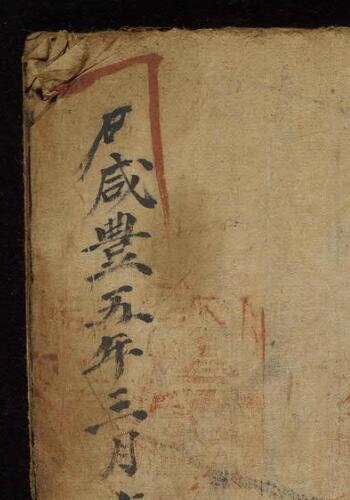 咸豐五年三月